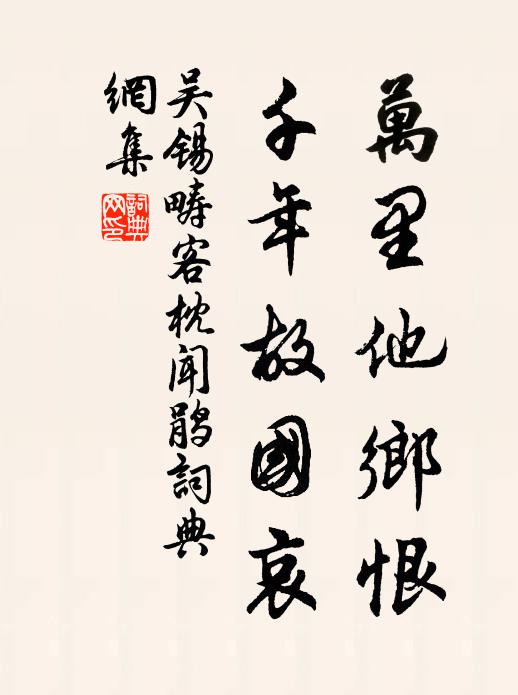 萬里他鄉恨
千年故國哀
吴錫疇客枕闻鹃詞典
網集
詞典网印